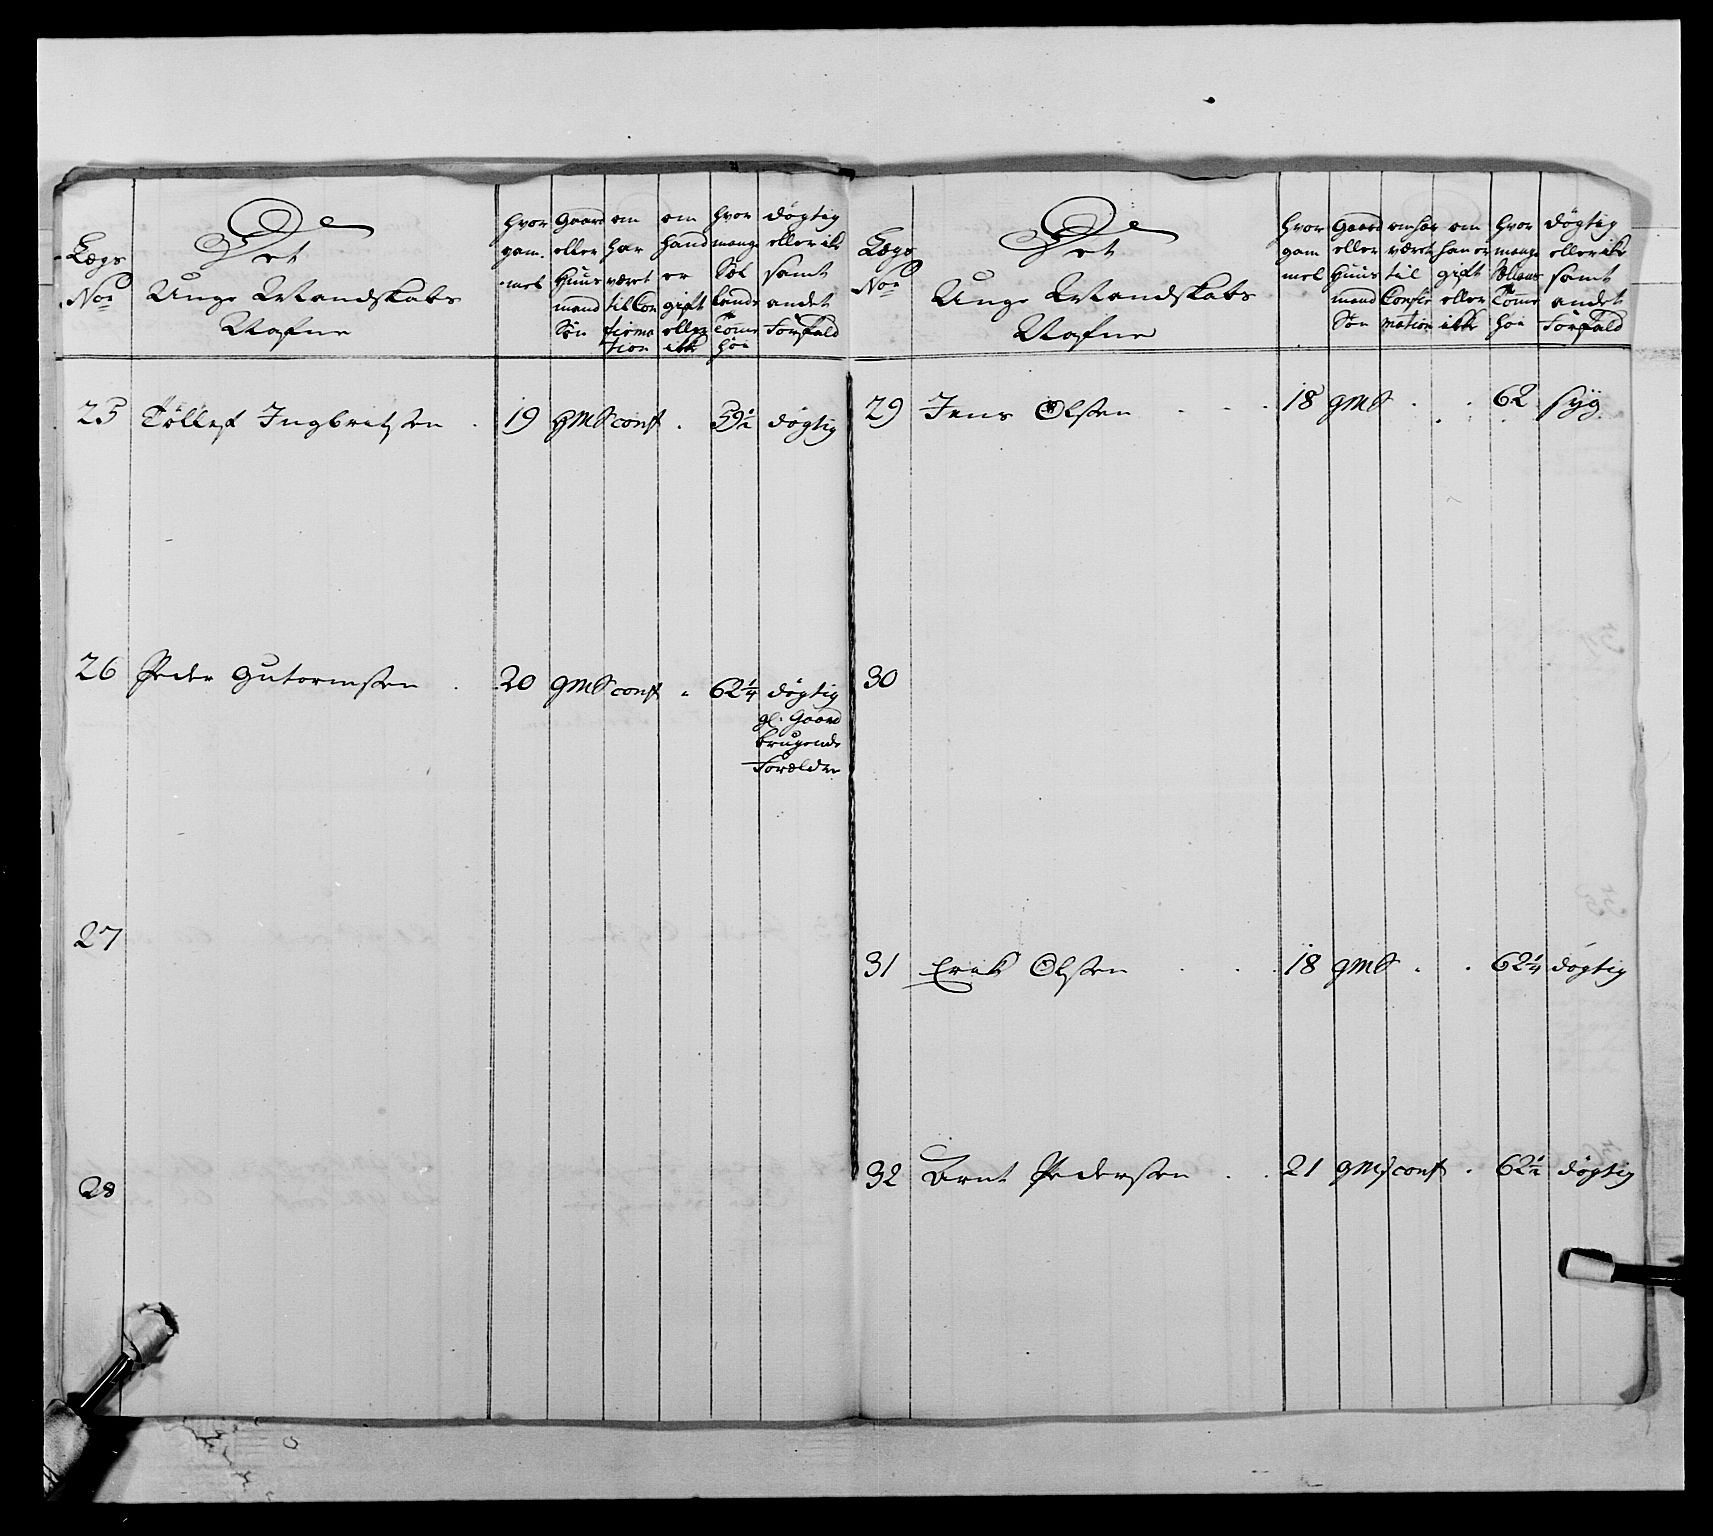 Lægs No
Det Unge Mandskabs Nafne
hvor gam-mel
Gaard eller Huus mand Søn
om har været til Con firma tion
om hand er gift eller ikk
hvor mange tomer høi
døgtig eller ikk samt andet Forfald
25 Tøllef Ingbritsen . 19 GMS conf . 59½ døgtig
26 Peder Gutormsen . 20 GMS conf . 62¼ døgtig
gl. Gaard
brugende
Forældre
27
28
Lægs No
Det Unge Mandskabs Nafne
hvor gam mel
Gaard eller Huus mand Søn
om har været til Confir mation
om han er gift eller ikke
hvor mange Tomer høi
døgtig eller ikk samt andet Forfald
29 Jens Olsen . . . 18 GMS . . 62 syg
30
31 Erik Olsen . . . 18 GMS . . 62¼ døgtig
32 Arnt Pedersen . . 21 GMS conf . 62½ døgtig